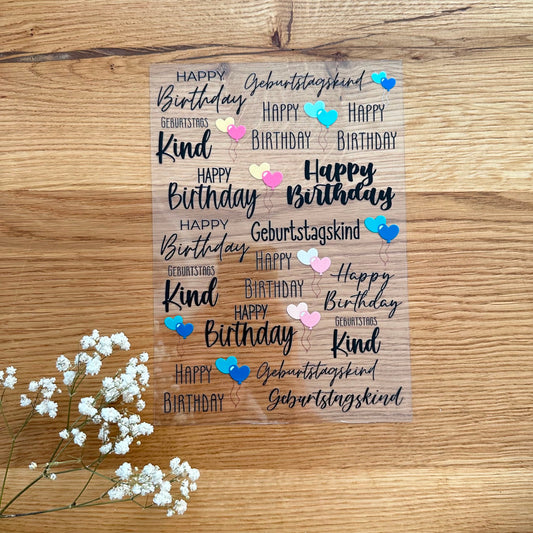 HAPPY
Birthday
Geburtstagskind
GEBURTSTAGS
Kind
HAPPY
BIRTHDAY
HAPPY
BIRTHDAY
HAPPY
Birthday
Happy
Birthday
HAPPY
Birthday
Geburtstagskind
GEBURTSTAGS
Kind
HAPPY
BIRTHDAY
Happy
Birthday
HAPPY
Birthday
GEBURTSTAGS
Kind
HAPPY
BIRTHDAY
Geburtstagskind
Geburtstagskind